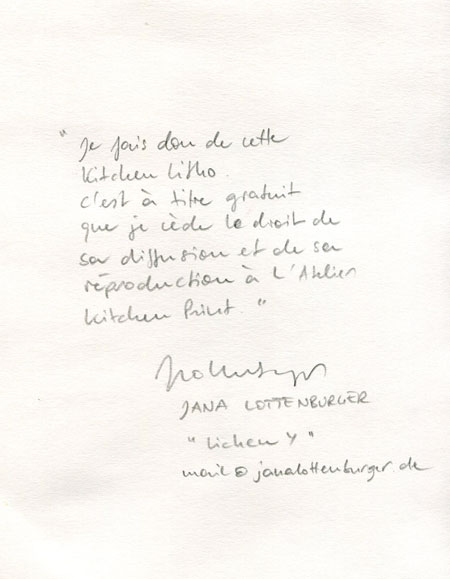 "Je fais don de cette
Kitchen Litho.
C'est à titre gratuit
que je cède le droit de
sa diffusion et de sa
réproduction à l'Atelier
Kitchen Print."
JANA LOTTENBURGER
"Lichen Y"
mail@janalottenburger.de